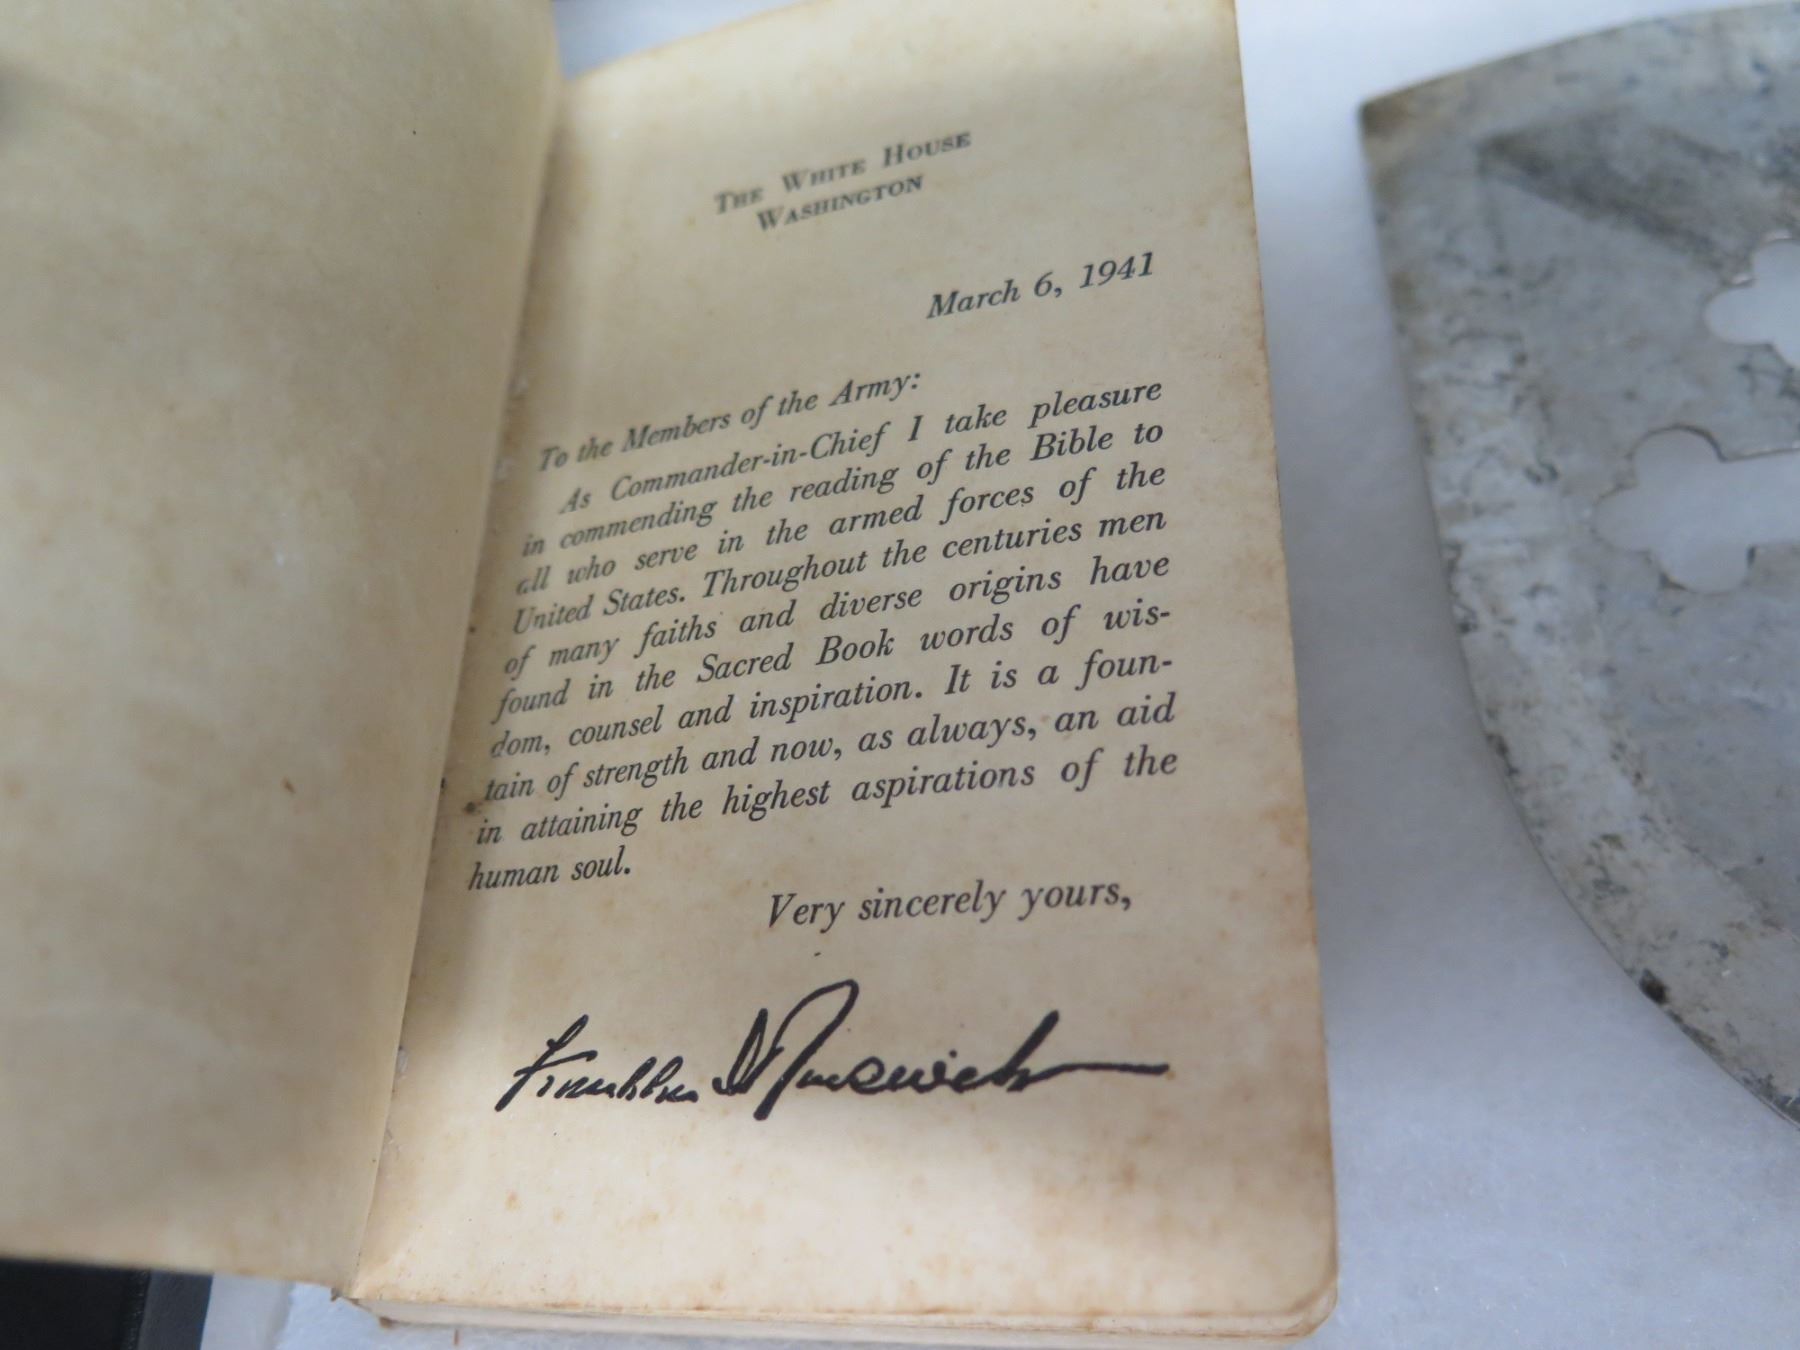 The White House
Washington
March 6, 1941
To the Members of the Army:
As Commander-in-Chief I take pleasure
in commending the reading of the Bible to
all who serve in the armed forces of the
United States. Throughout the centuries men
of many faiths and diverse origins have
found in the Sacred Book words of wis-
dom, counsel and inspiration. It is a foun-
tain of strength and now, as always, an aid
in attaining the highest aspirations of the
human soul.
Very sincerely yours,
Franklin D Roosevelt